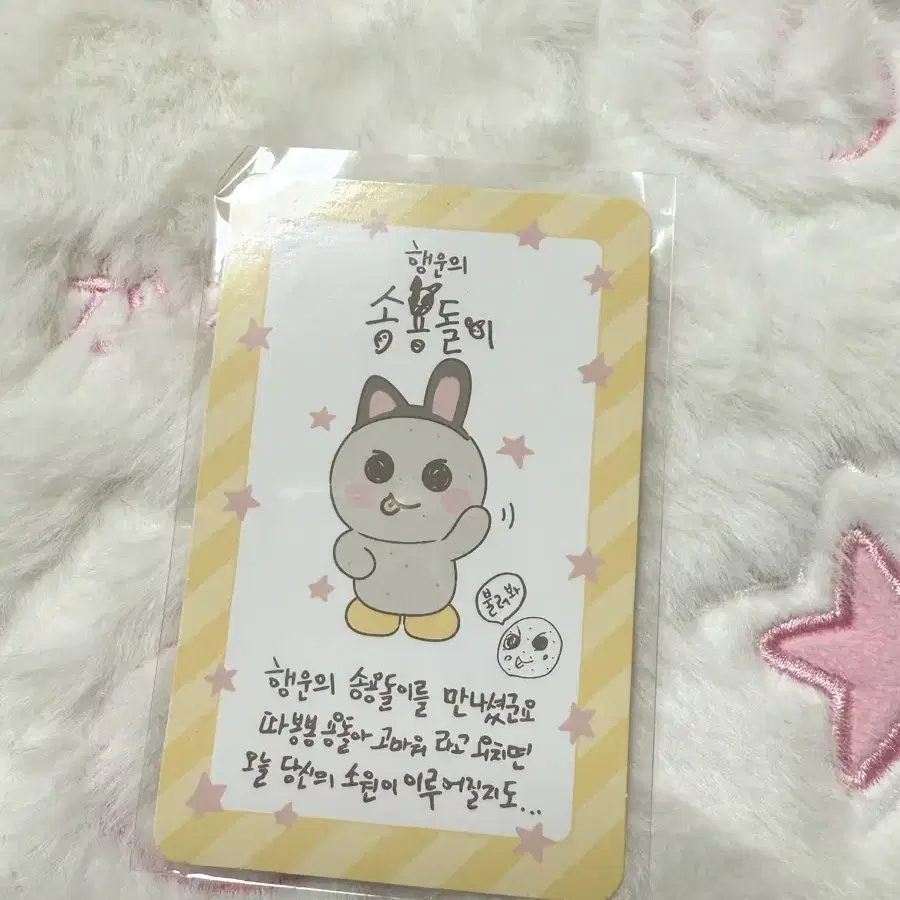 행운의
송용돌이
불러봐
행운의 송용돌이를 만나셨군요
따봉뽕 용돌아 고마워 라고 외치면
오늘 당신의 소원이 이루어질지도...